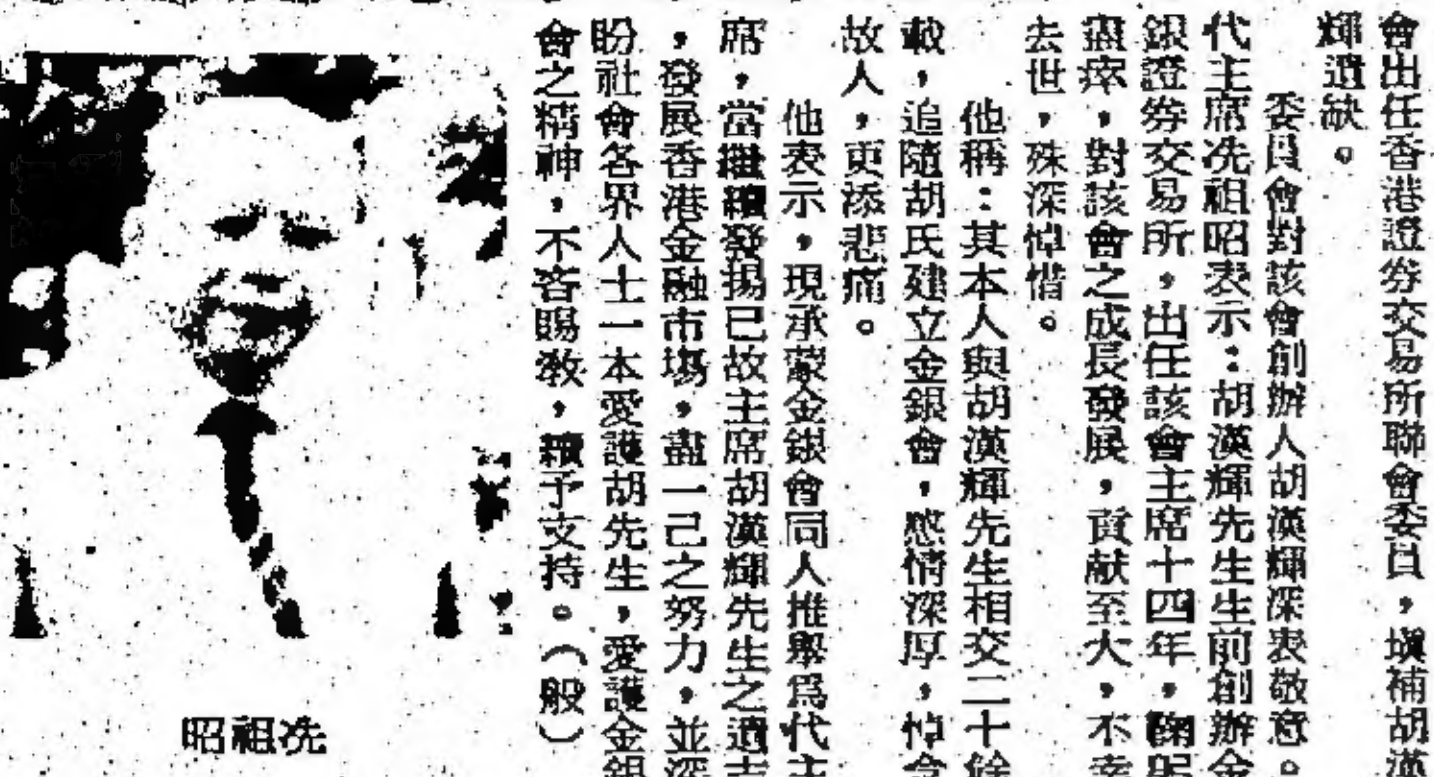 會出任香港證券交易所聯會委員，塡補胡漢
輝遺缺。
委員會對該會創辦人胡漢輝深表敬意。
代主席冼祖昭表示：胡漢輝先生生前創辦金
銀證券交易所，出任該會主席十四年，鞠躬
盡瘁，對該會之成長發展，貢獻至大，不幸
去世，殊深悼惜。
他稱：其本人與胡漢輝先生相交二十餘
載，追隨胡氏建立金銀會，感情深厚，悼念
故人，更添悲痛。
他表示，現承蒙金銀會同人推舉爲代主
席，當繼續發揚已故主席胡漢輝先生之遺志
，發展香港金融市場，盡一己之努力，並深
盼社會各界人士一本愛護胡先生，愛護金銀
會之精神，不吝賜敎，續予支持。（般）
昭祖冼